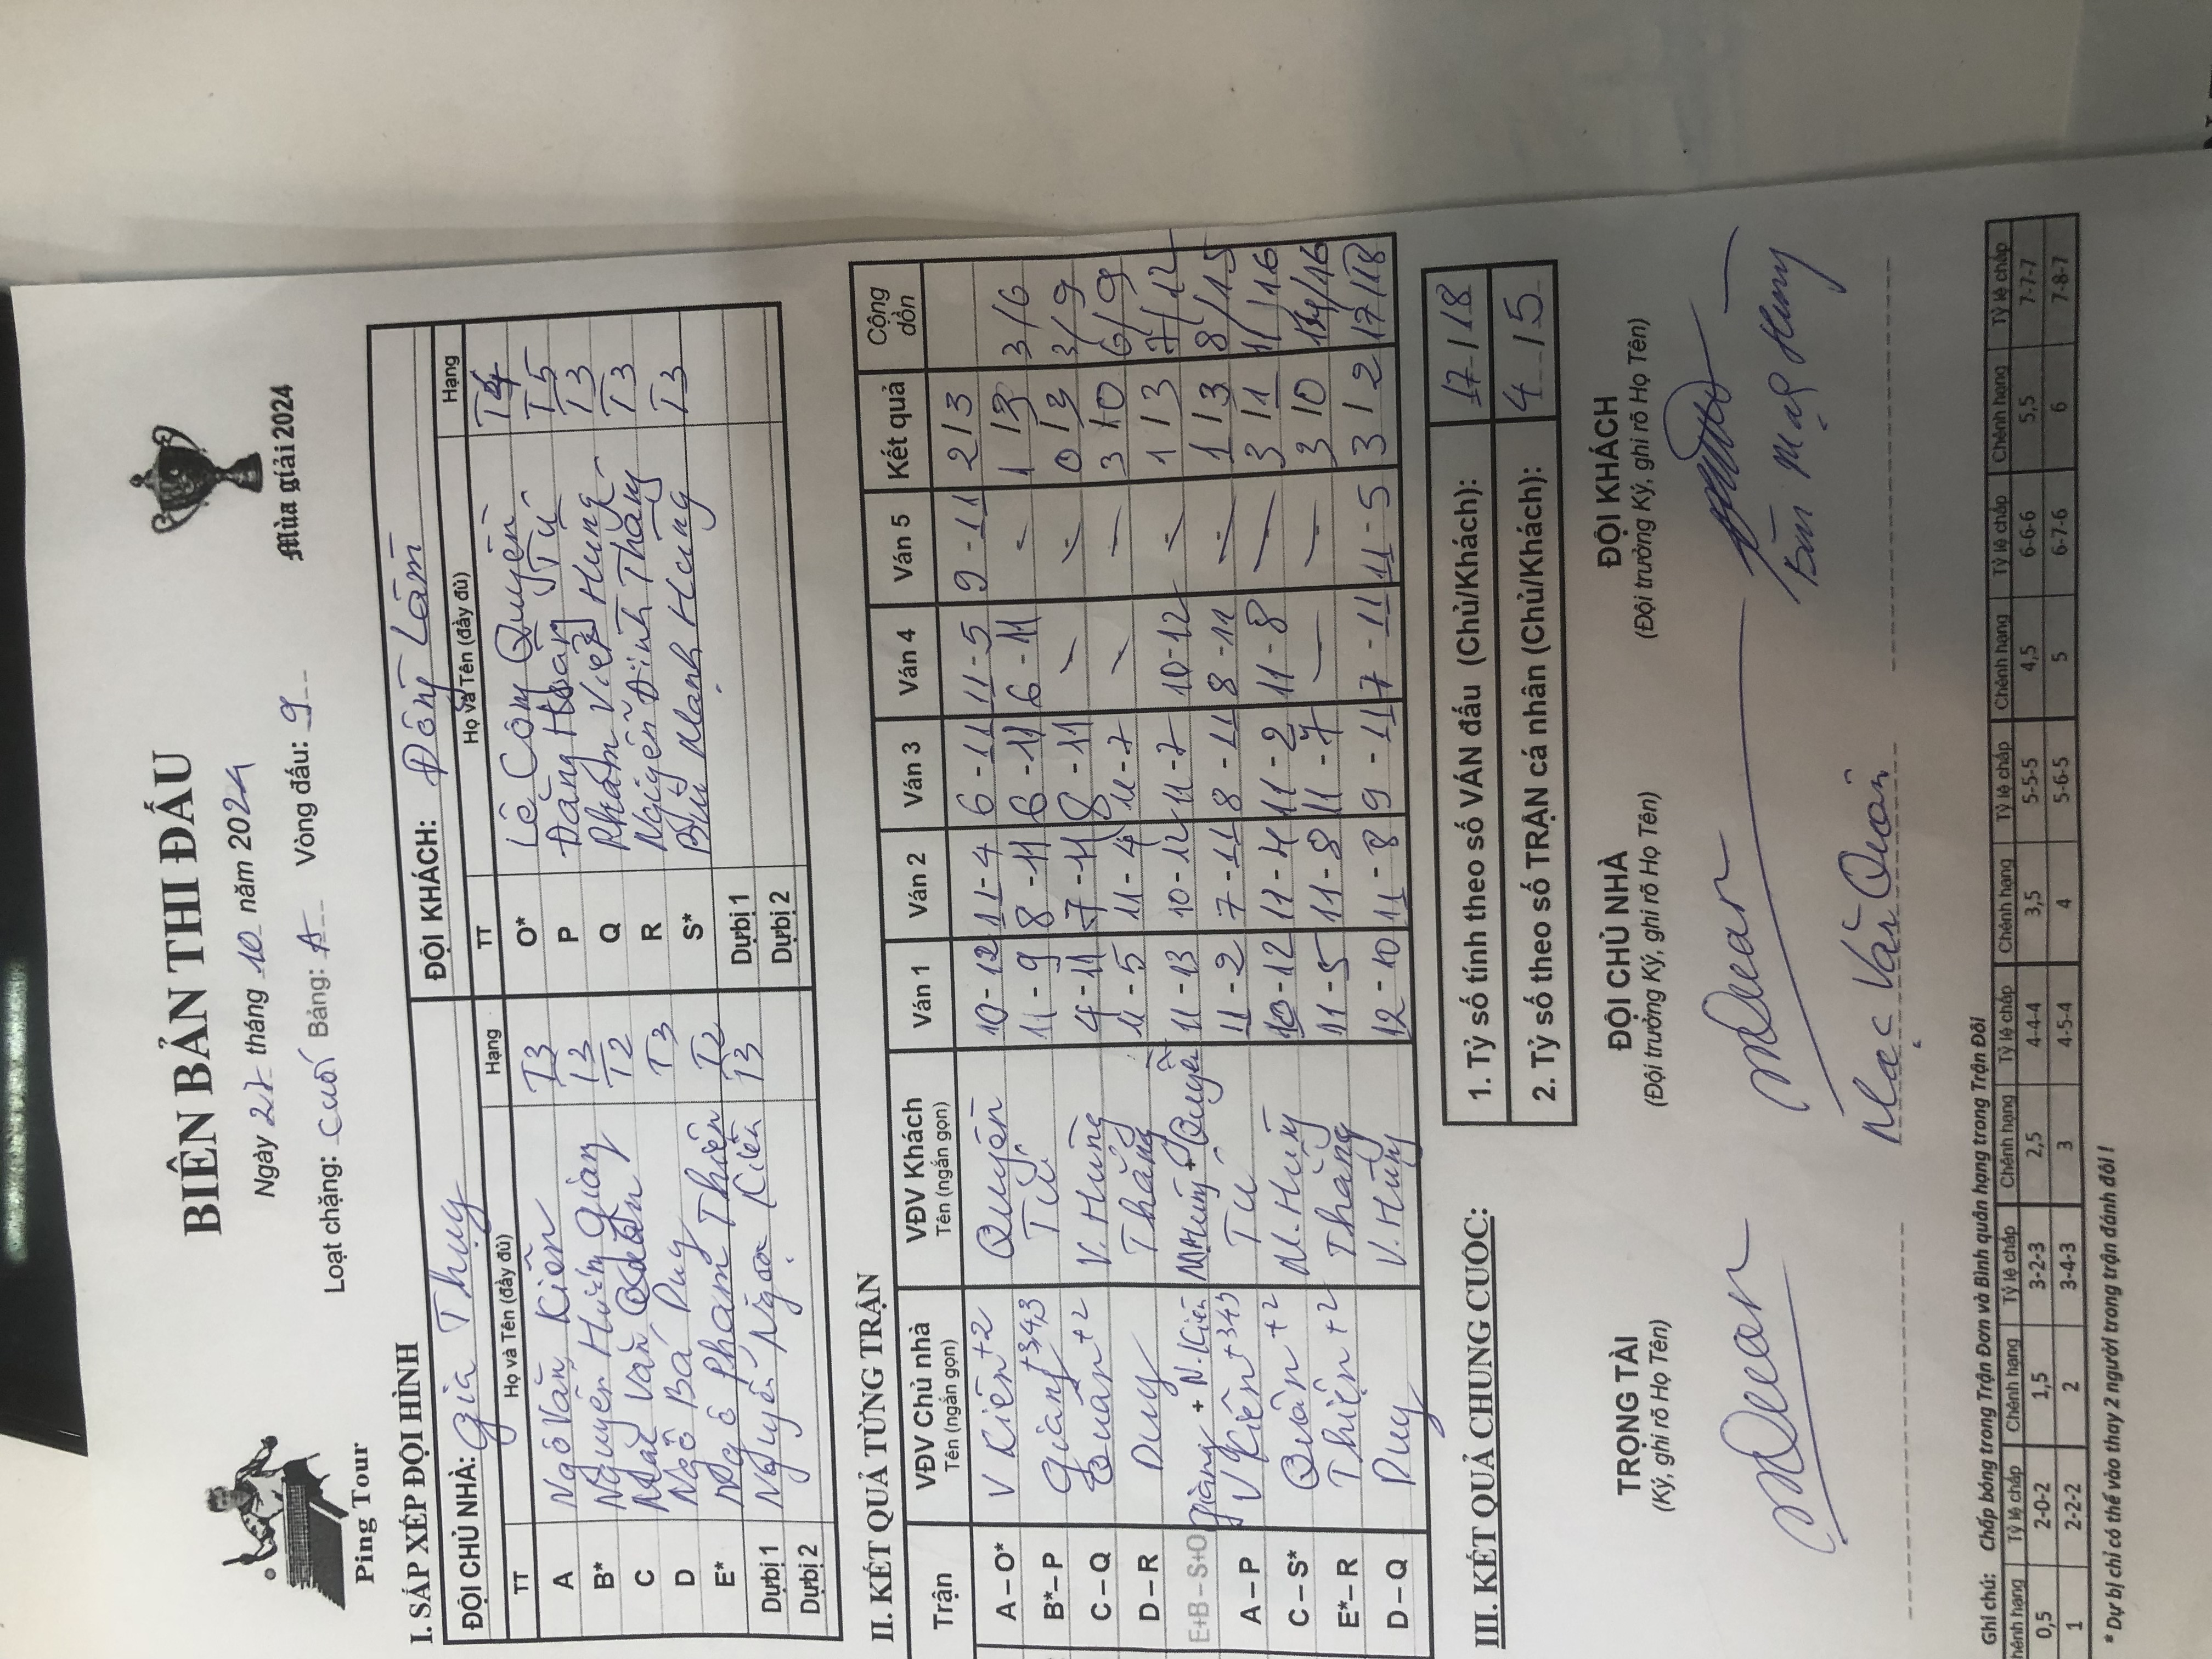 BIÊN BẢN THI ĐẤU
Ngày 27 tháng 10 năm 2024
Loạt chặng: cuối Bảng: A Vòng đấu: 9
Ping Tour
Mùa giải 2024
I. SẮP XẾP ĐỘI HÌNH
ĐỘI CHỦ NHÀ: Gia Thụy
TT Họ và Tên (đầy đủ) Hạng
A Ngô Văn Kiên T3
B* Nguyễn Hương Giang T3
C Mạc Văn Quân T2
D Ngô Bá Duy T3
E* Ngô Phạm Thiện T2
Dự bị 1 Nguyễn Ngọc Kiên T3
Dự bị 2
ĐỘI KHÁCH: Đồng Lâm
TT Họ và Tên (đầy đủ) Hạng
O* Lê Công Quyền T4
P Đặng Hoàng Tú T5
Q Phạm Việt Hùng T3
R Nguyễn Đình Thắng T3
S* Bùi Mạnh Hùng T3
Dự bị 1
Dự bị 2
II. KẾT QUẢ TỪNG TRẬN
Trận VĐV Chủ nhà Tên (ngắn gọn) VĐV Khách Tên (ngắn gọn) Ván 1 Ván 2 Ván 3 Ván 4 Ván 5 Kết quả Cộng dồn
A – O* V Kiên +2 Quyền 10-12 11-4 6-11 11-5 9-11 2/3
B* – P Giang +3,4,3 Tú 11-9 8-11 6-11 6-11 - 1/3 3/6
C – Q Quân +2 V. Hùng 4-11 7-11 8-11 - - 0/3 3/9
D – R Duy Thắng 11-5 11-4 11-7 - - 3/0 6/9
E+B – S+O Giang + N. Kiên M.Hùng + Quyền 11-13 10-12 11-7 10-12 - 1/3 7/12
A – P V Kiên +343 Tú 11-2 7-11 8-11 8-11 - 1/3 8/15
C – S* Quân +2 M. Hùng 10-12 11-4 11-2 11-8 - 3/1 11/16
E* – R Thiện +2 Thắng 11-5 11-8 11-7 - - 3/0 14/16
D – Q Duy V. Hùng 12-10 11-8 9-11 7-11 11-5 3/2 17/18
III. KẾT QUẢ CHUNG CUỘC:
1. Tỷ số tính theo số VÁN đấu (Chủ/Khách): 17/18
2. Tỷ số theo số TRẬN cá nhân (Chủ/Khách): 4/5
TRỌNG TÀI
(Ký, ghi rõ Họ Tên)
ĐỘI CHỦ NHÀ
(Đội trưởng Ký, ghi rõ Họ Tên)
ĐỘI KHÁCH
(Đội trưởng Ký, ghi rõ Họ Tên)
mQuan
mQuan
Bùi Mạnh Hùng
Mạc Văn Quân
Ghi chú: Chấp bóng trong Trận Đơn và Bình quân hạng trong Trận Đôi
hênh hạng Tỷ lệ chấp Chênh hạng Tỷ lệ chấp Chênh hạng Tỷ lệ chấp Chênh hạng Tỷ lệ chấp Chênh hạng Tỷ lệ chấp Chênh hạng Tỷ lệ chấp
0,5 2-0-2 1,5 3-2-3 2,5 4-4-4 3,5 5-5-5 4,5 6-6-6 5,5 7-7-7
1 2-2-2 2 3-4-3 3 4-5-4 4 5-6-5 5 6-7-6 6 7-8-7
* Dự bị chỉ có thể vào thay 2 người trong trận đánh đôi !